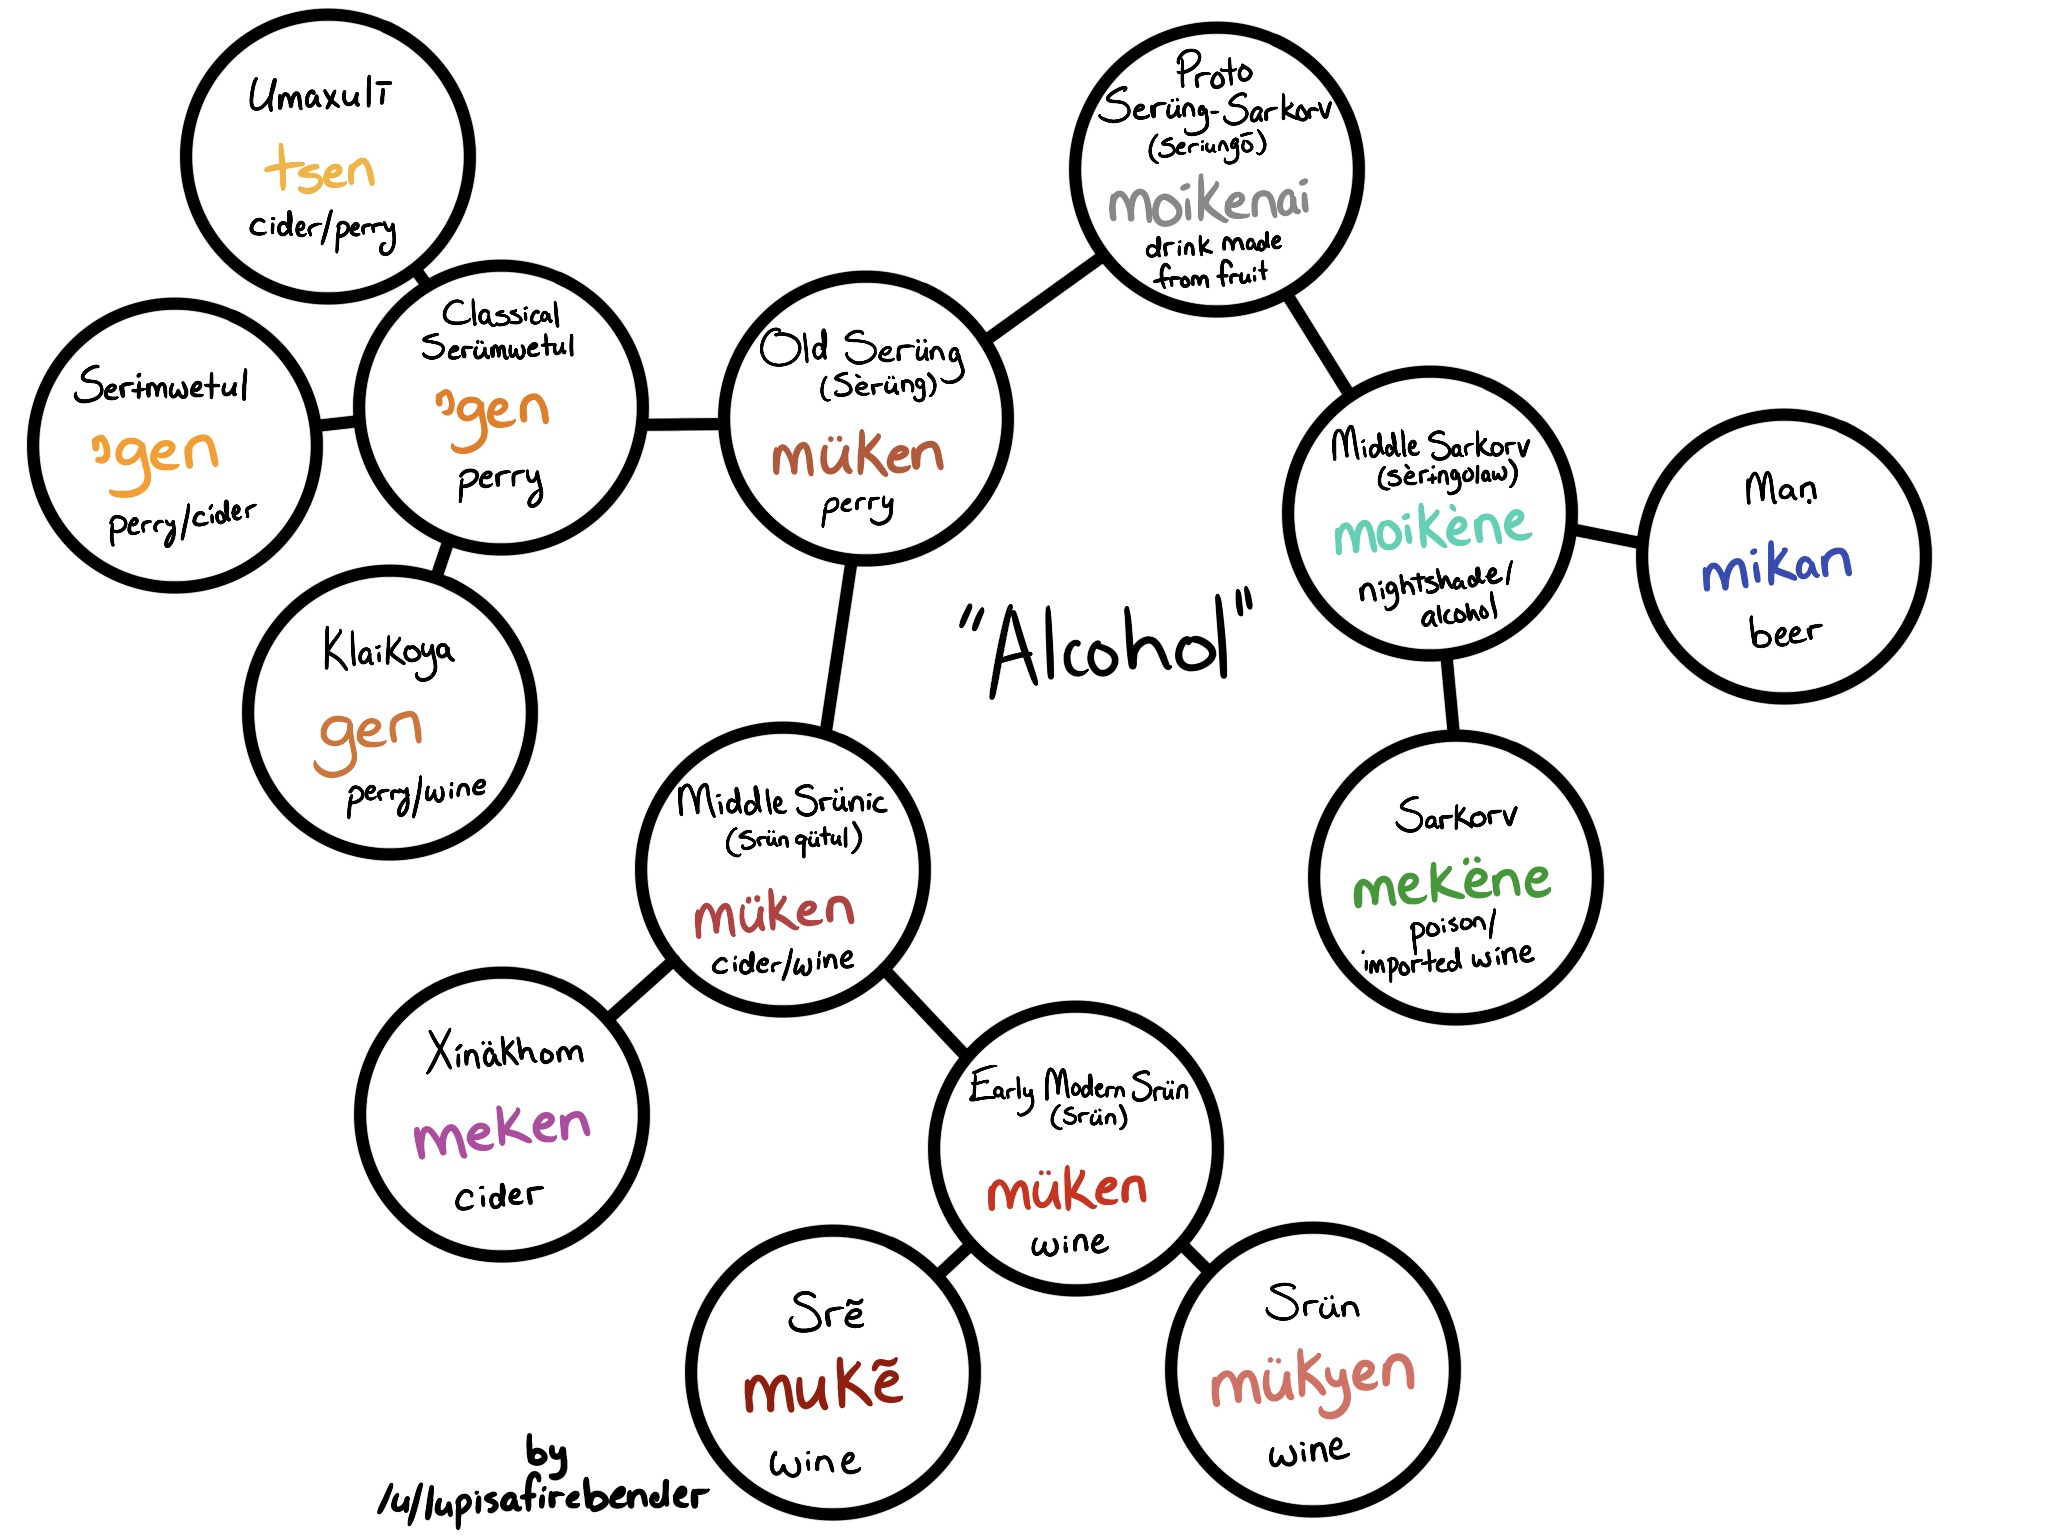 Umaxulī
tsen
cider/perry
Proto
Serüng-Sarkorv
(Seriungō)
moikenai
drink made
from fruit
Classical
Serümwetul
ꜣgen
perry
Serɨmwetul
ꜣgen
perry/cider
Old Serüng
(Sèrüng)
müken
perry
Klaikoya
gen
perry/wine
"Alcohol"
Middle Sarkorv
(sèrɨngòlaw)
moikène
nightshade/
alcohol
Maṇ
mikan
beer
Middle Srünic
(Srün qütul)
müken
cider/wine
Sarkorv
mekëne
poison/
imported wine
Xínäkhom
meken
cider
Early Modern Srün
(Srün)
müken
wine
Srẽ
mukẽ
wine
Srün
mükyen
wine
by
/u/lupisafirebender